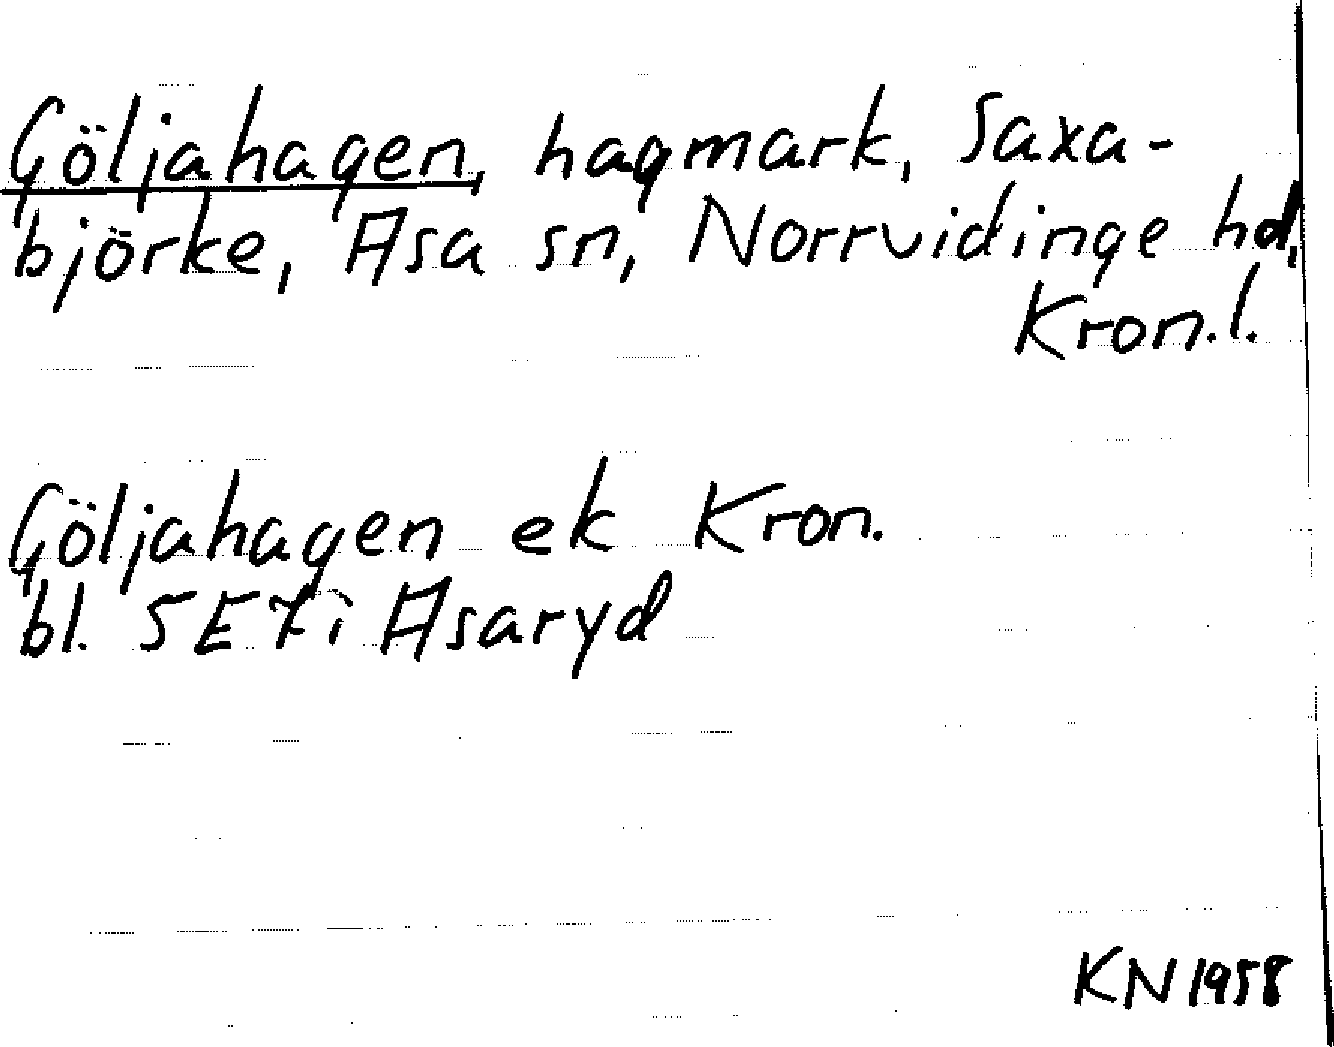 Göljahagen, hagmark, Saxa-
björke, Asa sn, Norrvidinge hd,
Kron.l.
Göljahagen ek Kron.
bl. 5E7i Asaryd
KN 1958